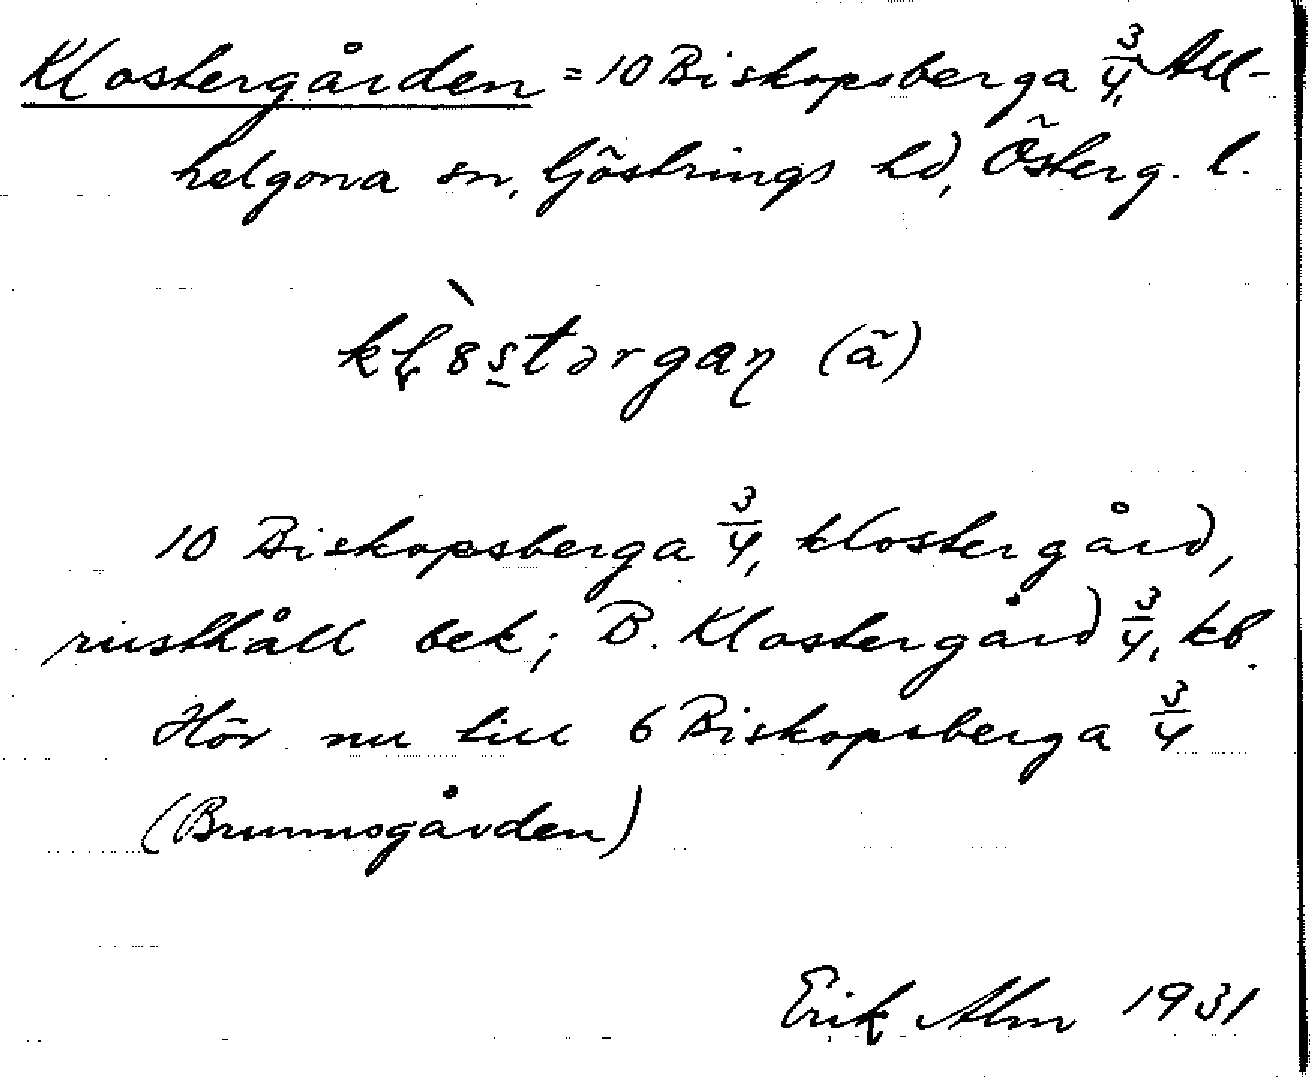 Klostergården = 10 Biskopsberga 3/4, All-
helgona sn, Göstrings hd, Österg. l.
(ã)
10 Biskopsberga 3/4, klostergård,
rusthåll bek; B. Klostergård 3/4, kb.
Hör nu till 6 Biskopsberga 3/4
(Brunnsgården)
Erik Alm 1931